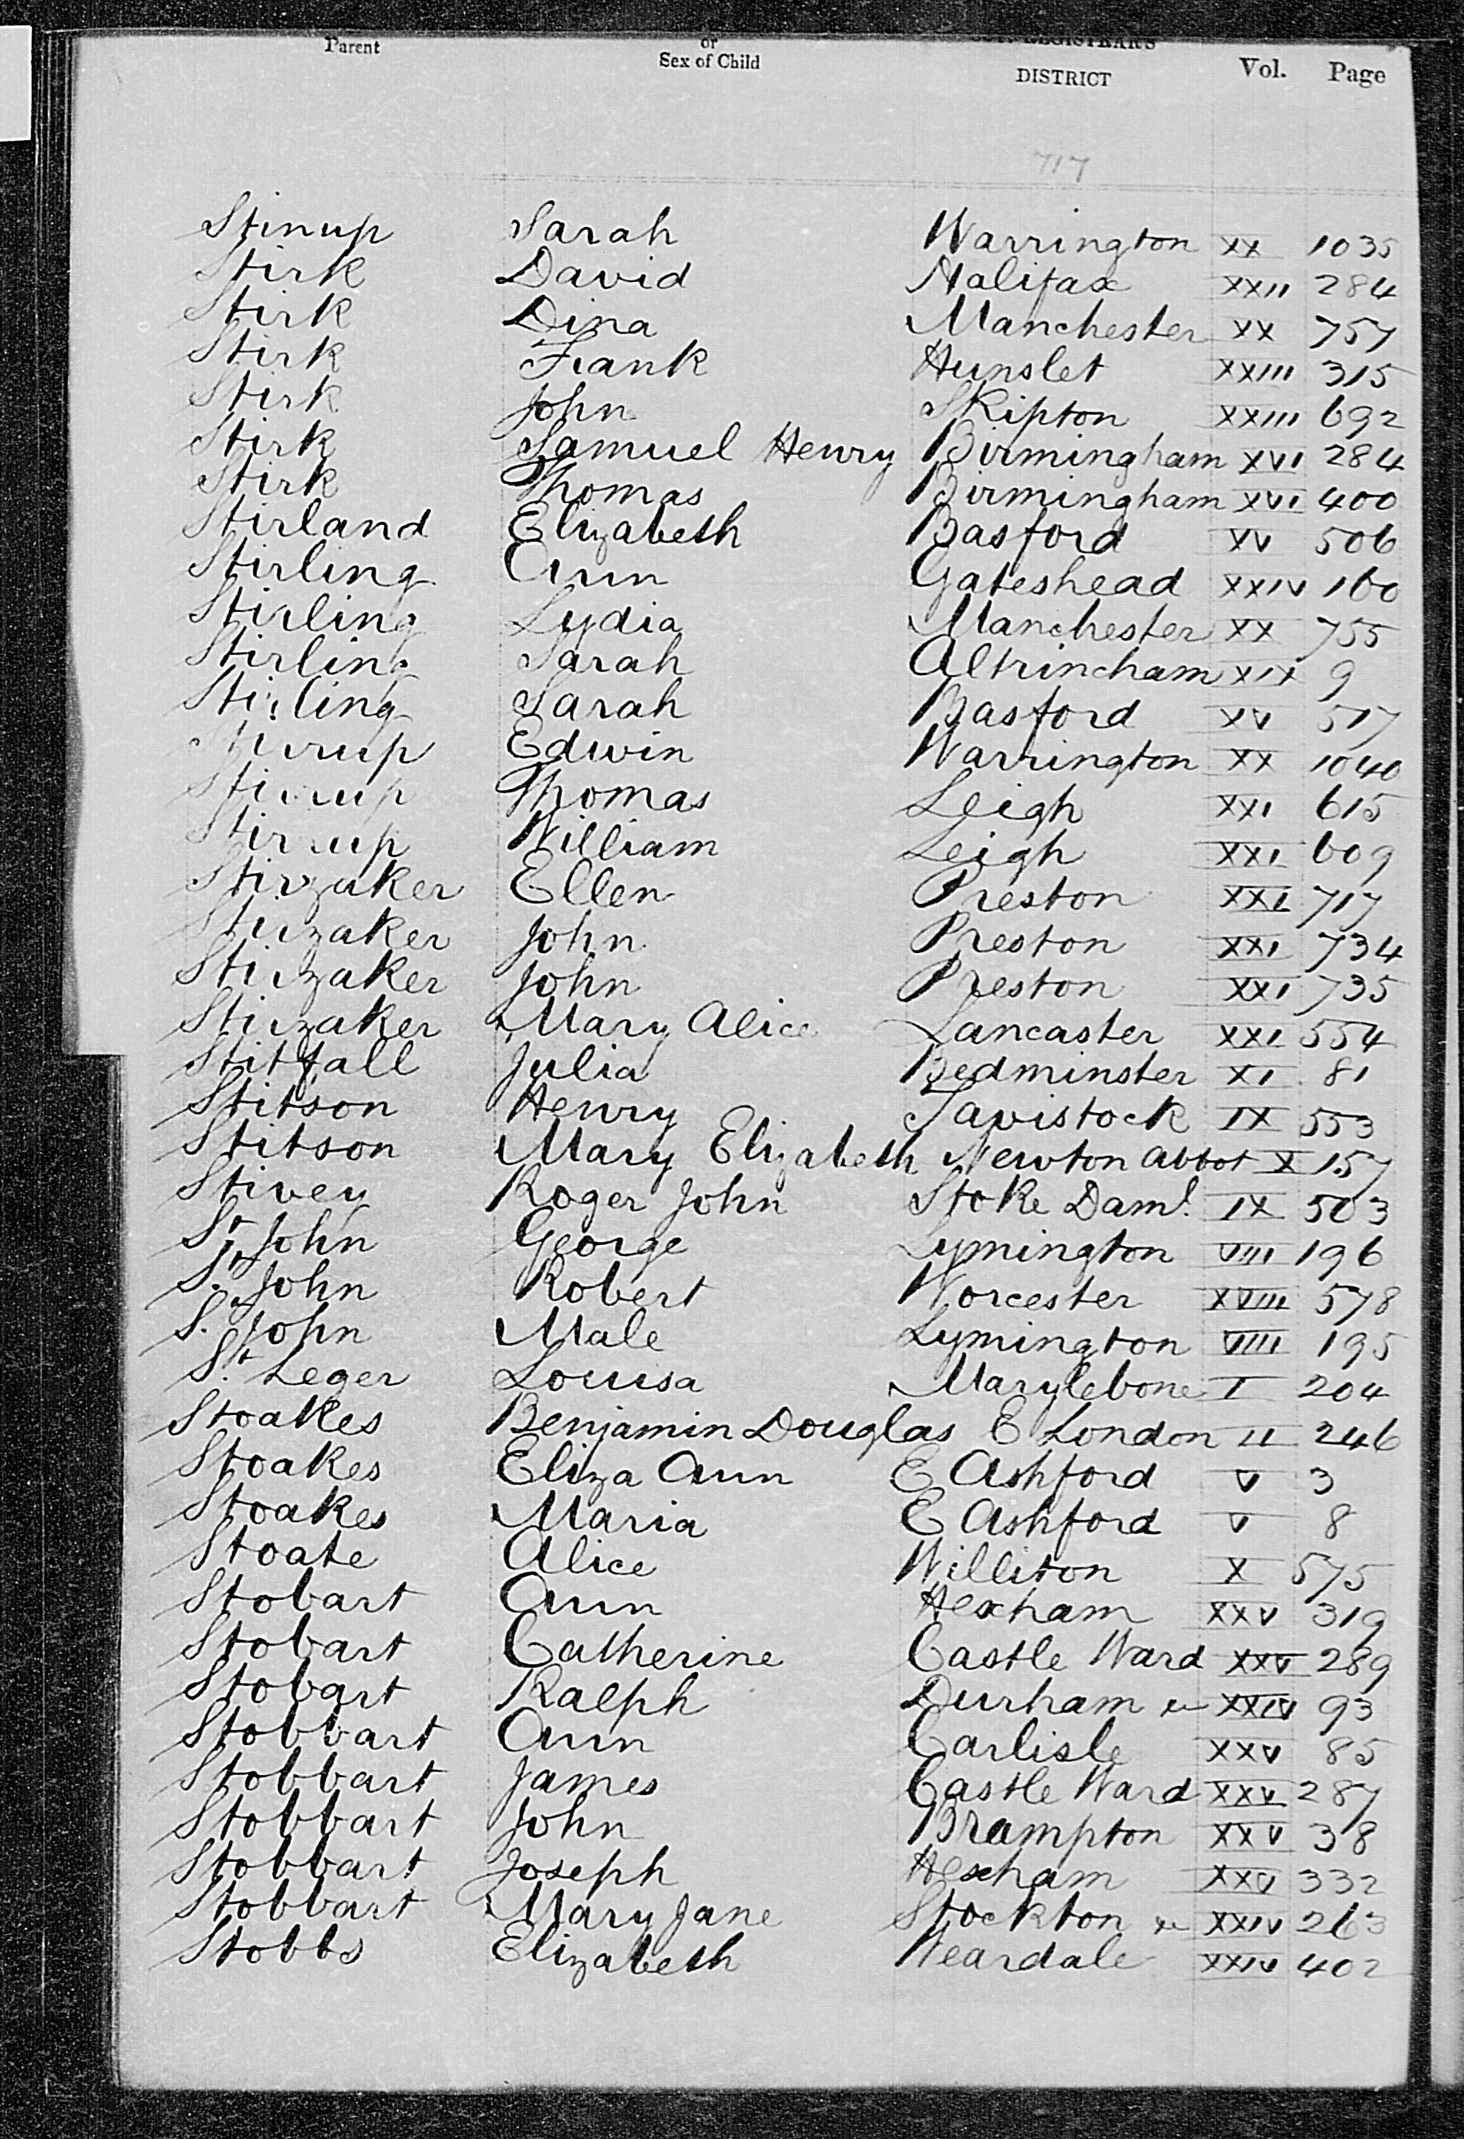 Parent or Sex of Child SUP. REGISTRAR'S DISTRICT Vol. Page
717
Stinup Sarah Warrington XX 1035
Stirk David Halifax XXII 284
Stirk Dina Manchester XX 757
Stirk Frank Hunslet XXIII 315
Stirk John Skipton XXIII 692
Stirk Samuel Henry Birmingham XVI 284
Stirk Thomas Birmingham XVI 400
Stirland Elizabeth Basford XV 506
Stirling Ann Gateshead XXIV 160
Stirling Lydia Manchester XX 755
Stirling Sarah Altrincham XIX 9
Stirling Sarah Basford XV 517
Stirrup Edwin Warrington XX 1040
Stirrup Thomas Leigh XXI 615
Stirrup William Leigh XXI 609
Stirzaker Ellen Preston XXI 717
Stirzaker John Preston XXI 734
Stirzaker John Preston XXI 735
Stirzaker Mary Alice Lancaster XXI 554
Stitfall Julia Bedminster XI 81
Stitson Henry Tavistock IX 553
Stitson Mary Elizabeth Newton Abbot X 157
Stivey Roger John Stoke Daml. IX 503
St. John George Lymington VIII 196
St. John Robert Worcester XVIII 578
St. John Male Lymington VIII 195
St. Leger Louisa Marylebone I 204
Stoakes Benjamin Douglas E London II 246
Stoakes Eliza Ann E Ashford V 3
Stoakes Maria E Ashford V 8
Stoate Alice Williton X 575
Stobart Ann Hexham XXV 319
Stobart Catherine Castle Ward XXV 289
Stobart Ralph Durham &c XXIV 93
Stobbart Ann Carlisle XXV 85
Stobbart James Castle Ward XXV 287
Stobbart John Brampton XXV 38
Stobbart Joseph Hexham XXV 332
Stobbart Mary Jane Stockton &c XXIV 263
Stobbs Elizabeth Weardale XXIV 402